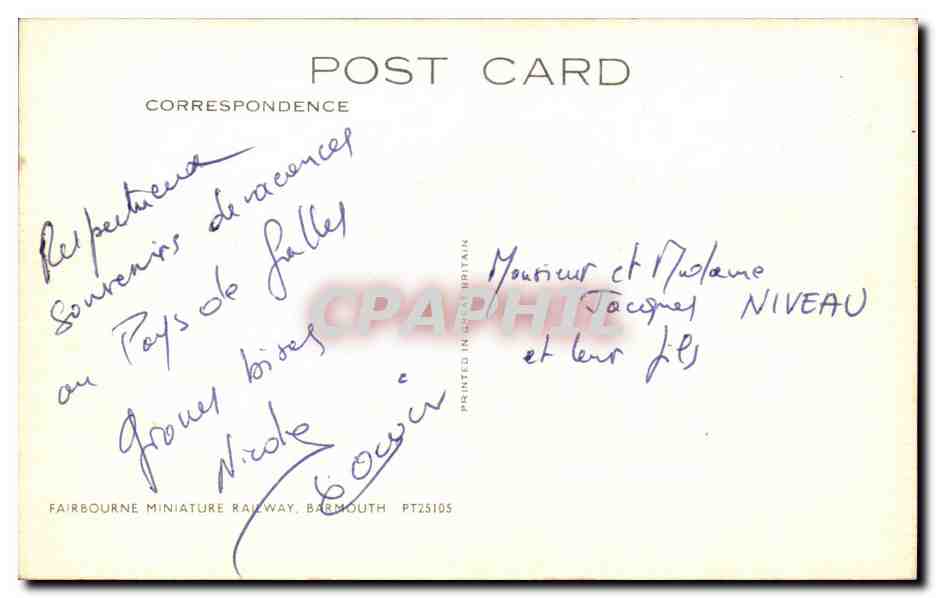 POST CARD
CORRESPONDENCE
souvenirs de vacances
au Pays de Galles
bises
Nicole
Monsieur et Madame
Jacques NIVEAU
et leur fils
PRINTED IN GREAT BRITAIN
FAIRBOURNE MINIATURE RAILWAY, BARMOUTH PT25105
CPAPHIL